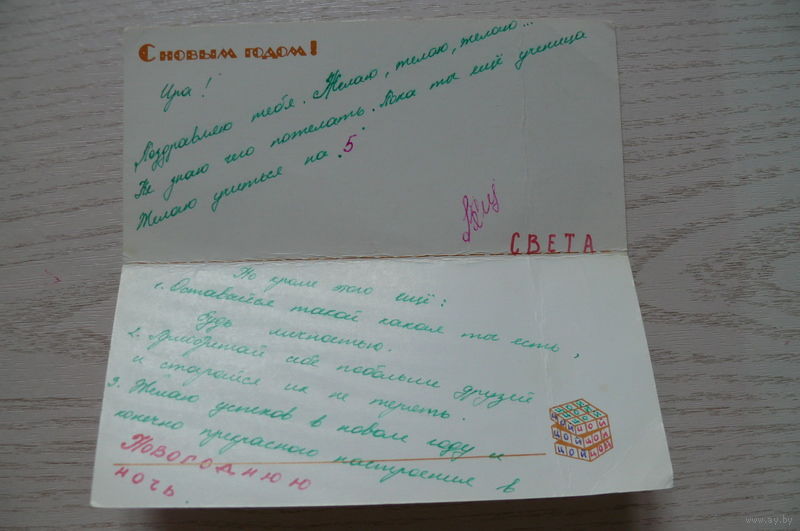 С новым годом!
Ира!
Поздравляю тебя. Желаю, желаю, желаю...
Не знаю чего пожелать. Пока ты ещё ученица
Желаю учиться на "5".
СВЕТА
Но кроме этого ещё:
1. Оставайся такой какая ты есть,
будь личностью.
2. Приобретай себе побольше друзей
и старайся их не терять.
3. Желаю успехов в новом году и
конечно прекрасного настроения в
Новогоднюю
ночь.
ЦОЙ ЦОЙ
ЦОЙ ЦОЙ
ЦОЙ ЦОЙ
www.ay.by